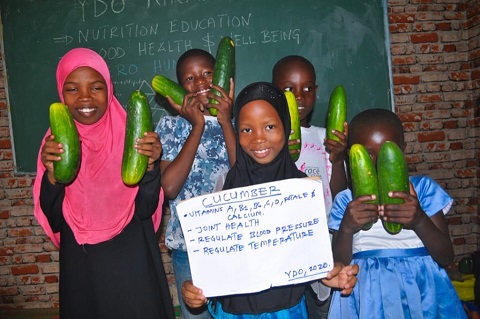 YDO
⇒ NUTRITION EDUCATION
OOD HEALTH & WELL BEING
RO HU
CUCUMBER
• VITAMINS A, B1, B6, C, D, FOLATE &
CALCIUM.
- JOINT HEALTH
- REGULATE BLOOD PRESSURE
- REGULATE TEMPERATURE
YDO, 2020.